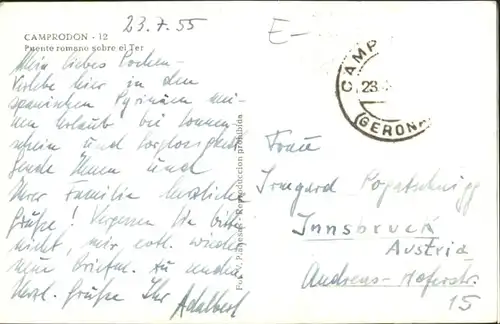 23.7.55
CAMPRODON - 12
Puente romano sobre el Ter
Mein liebes
Verlebe hier in den
spanischen Pyrinäen mei-
nen Urlaub bei Sonnen-
schein und Sorglosigkeit
Sende Ihnen und
Ihrer Familie herzliche
Grüße! Vergessen Sie bitte
nicht, mir evtl. wieder
neue Briefm. zu senden
Herzl. Grüße Ihr Adalbert
Reproduccion prohibida
E-
CAMP
23
(GERONA
Frau
Irmgard Pogatschnigg
Innsbruck
Austria
Andreas-Hoferstr.
15